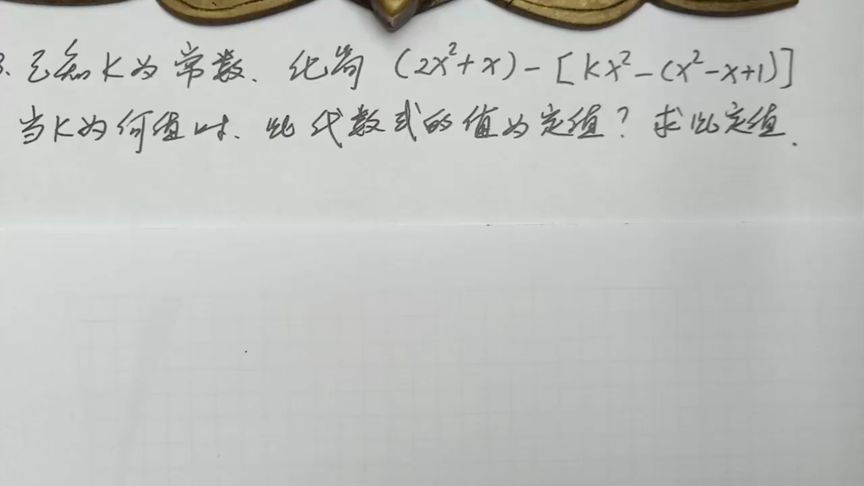 3. 已知K为常数. 化简 (2x²+x)-[Kx²-(x²-x+1)]
当K为何值时. 此代数式的值为定值? 求此定值.